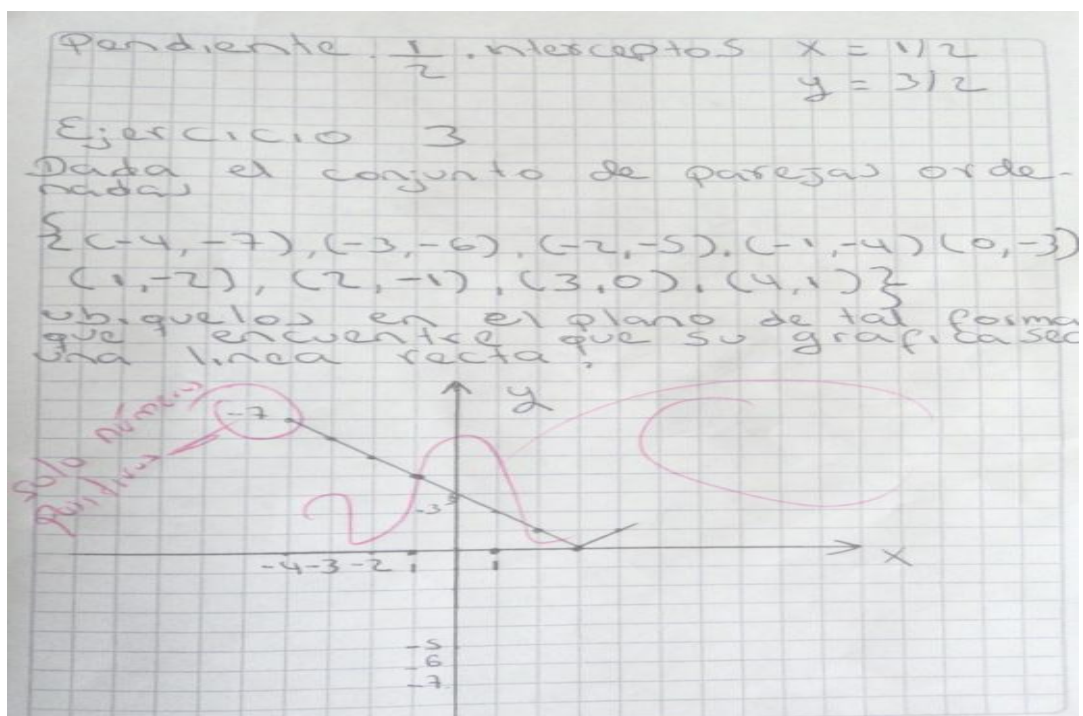 Pendiente 1/2 . interceptos x = 1/2
y = 3/2
Ejercicio 3
Dada el conjunto de parejas orde-
nadas
{(-4,-7),(-3,-6),(-2,-5),(-1,-4)(0,-3)
(1,-2),(2,-1),(3,0),(4,1)}
ubiquelos en el plano de tal forma
que encuentre que su grafica sea
una linea recta.
y
-7
Solo números
Positivos
-3
-4 -3 -2 1 1 x
-5
-6
-7